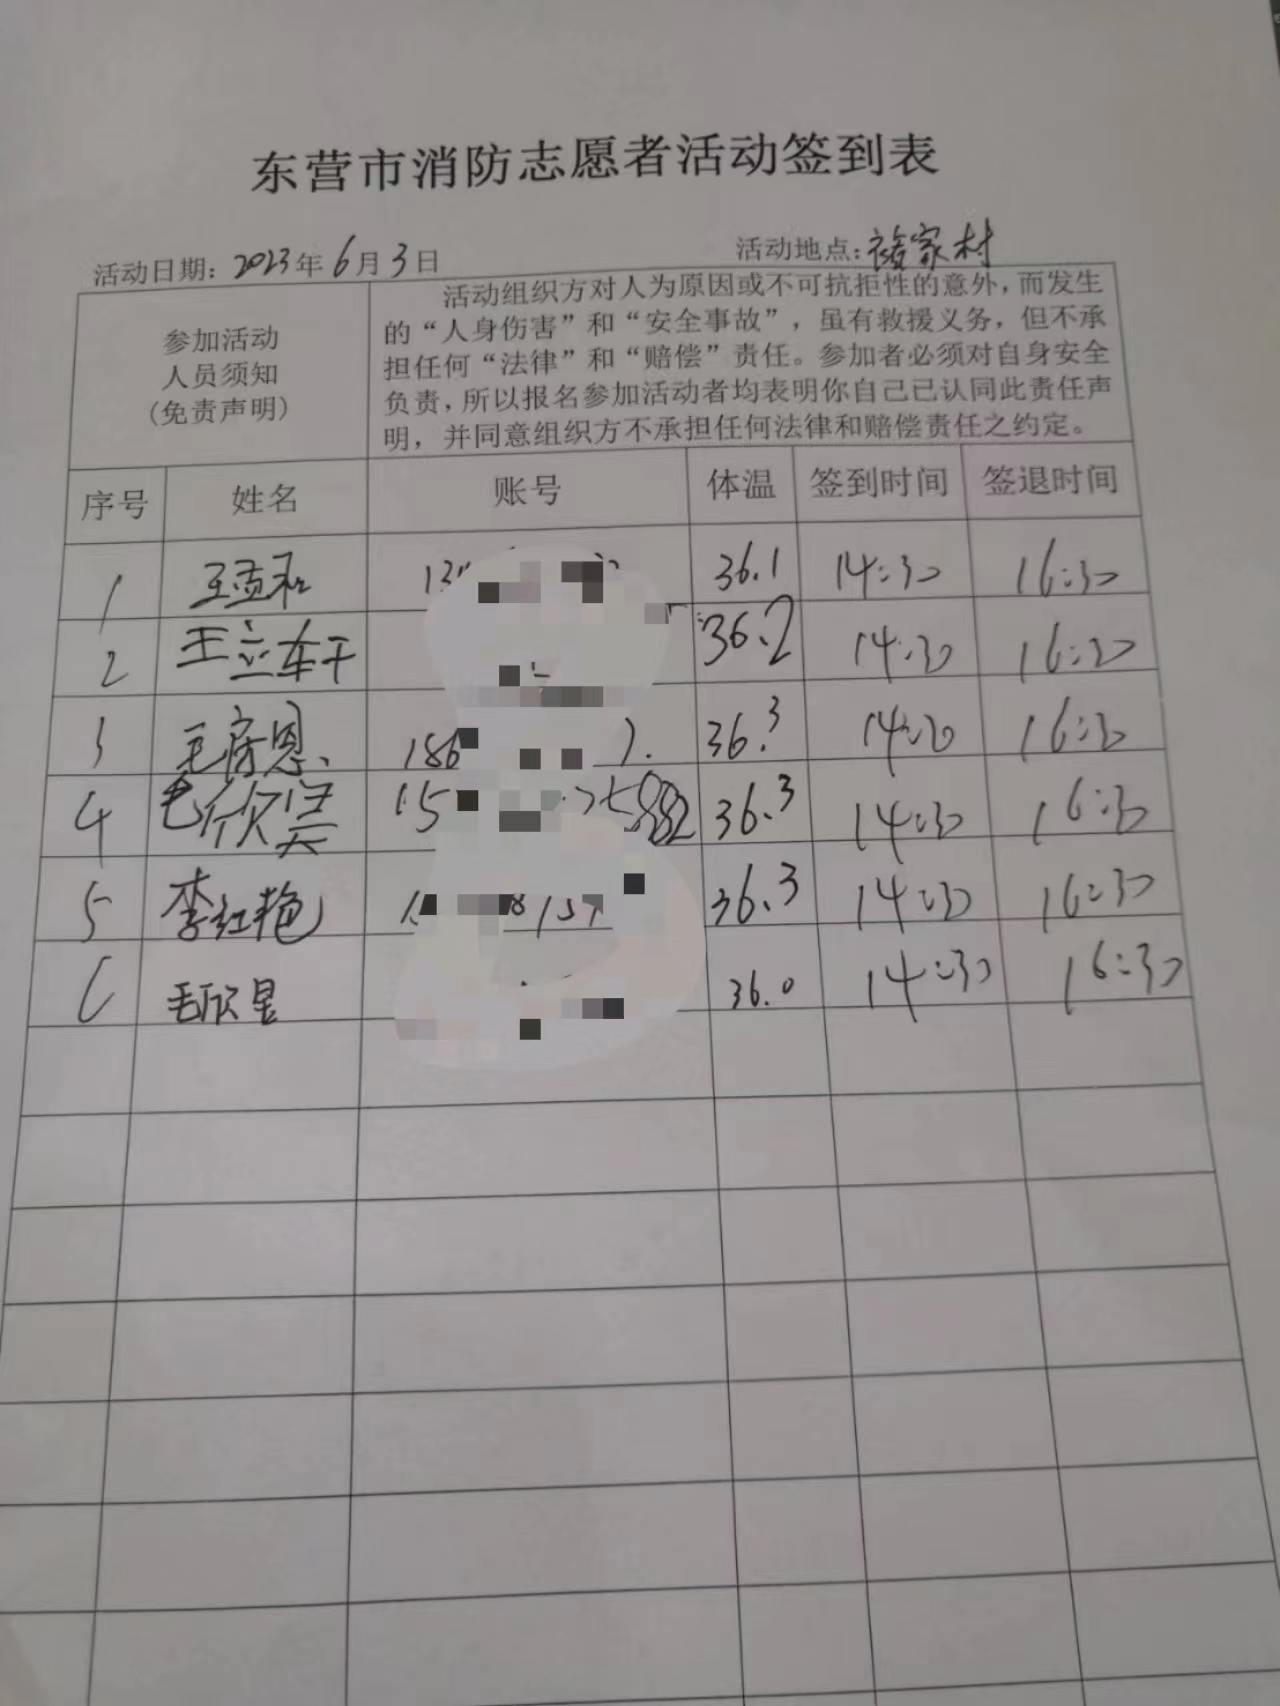 东营市消防志愿者活动签到表
活动日期：2023年6月3日 活动地点：家村
参加活动
人员须知
（免责声明）
活动组织方对人为原因或不可抗拒性的意外，而发生
的“人身伤害”和“安全事故”，虽有救援义务，但不承
担任何“法律”和“赔偿”责任。参加者必须对自身安全
负责，所以报名参加活动者均表明你自己已认同此责任声
明，并同意组织方不承担任何法律和赔偿责任之约定。
序号 姓名 账号 体温 签到时间 签退时间
1 王孟和 36.1 14:30 16:30
2 王立轩 36.2 14:30 16:30
3 毛房恩 186 36.3 14:30 16:30
4 毛欣昊 15 5882 36.3 14:30 16:30
5 李红艳 36.3 14:30 16:30
6 毛欣星 36.0 14:30 16:30